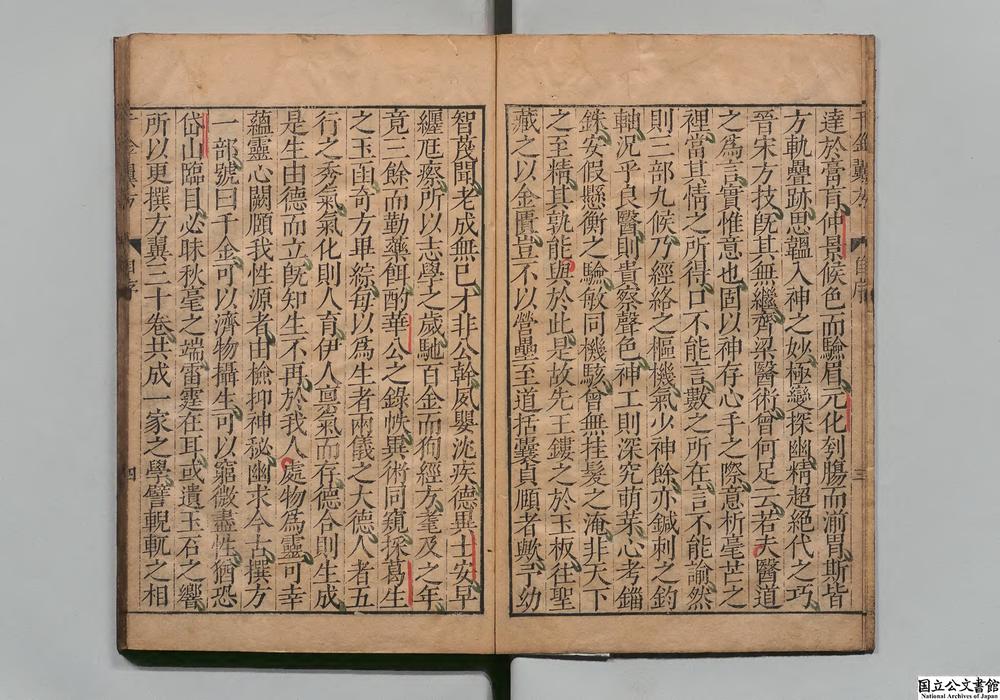 達於膏肓仲景候色而驗眉元化刳腸而湔胃斯皆
方軌疊跡思韞入神之妙極變探幽精超絕代之巧
晉宋方技旣其無繼齊梁醫術曾何足云若夫醫道
之爲言實惟意也固以神存心手之際意析毫芒之
裡當其情之所得口不能言數之所在言不能諭然
則三部九候乃經絡之樞機氣少神餘亦鍼刺之鈞
軸況乎良醫則貴察聲色神工則深究萌芽心考錙
銖安假懸衡之驗敏同機駭曾無挂髮之淹非天下
之至精其孰能與於此是故先王鏤之於玉板往聖
藏之以金匱豈不以營壘至道括囊真賾者歟予幼
自序
三
智蔑聞老成無已才非公幹夙嬰沈疾德異士安早
纏尫瘵所以志學之歲馳百金而徇經方耄及之年
竟三餘而勤藥餌酌華公之錄帙異術同窺採葛生
之玉函奇方畢綜每以爲生者兩儀之大德人者五
行之秀氣氣化則人育伊人稟氣而存德合則生成
是生由德而立旣知生不再於我人處物爲靈可幸
蘊靈心闕頤我性源者由檢抑神秘幽求今古撰方
一部號曰千金可以濟物攝生可以窮微盡性猶恐
岱山臨目必昧秋毫之端雷霆在耳或遺玉石之響
所以更撰方翼三十卷共成一家之學譬輗軏之相
自序
四
国立公文書館
National Archives of Japan